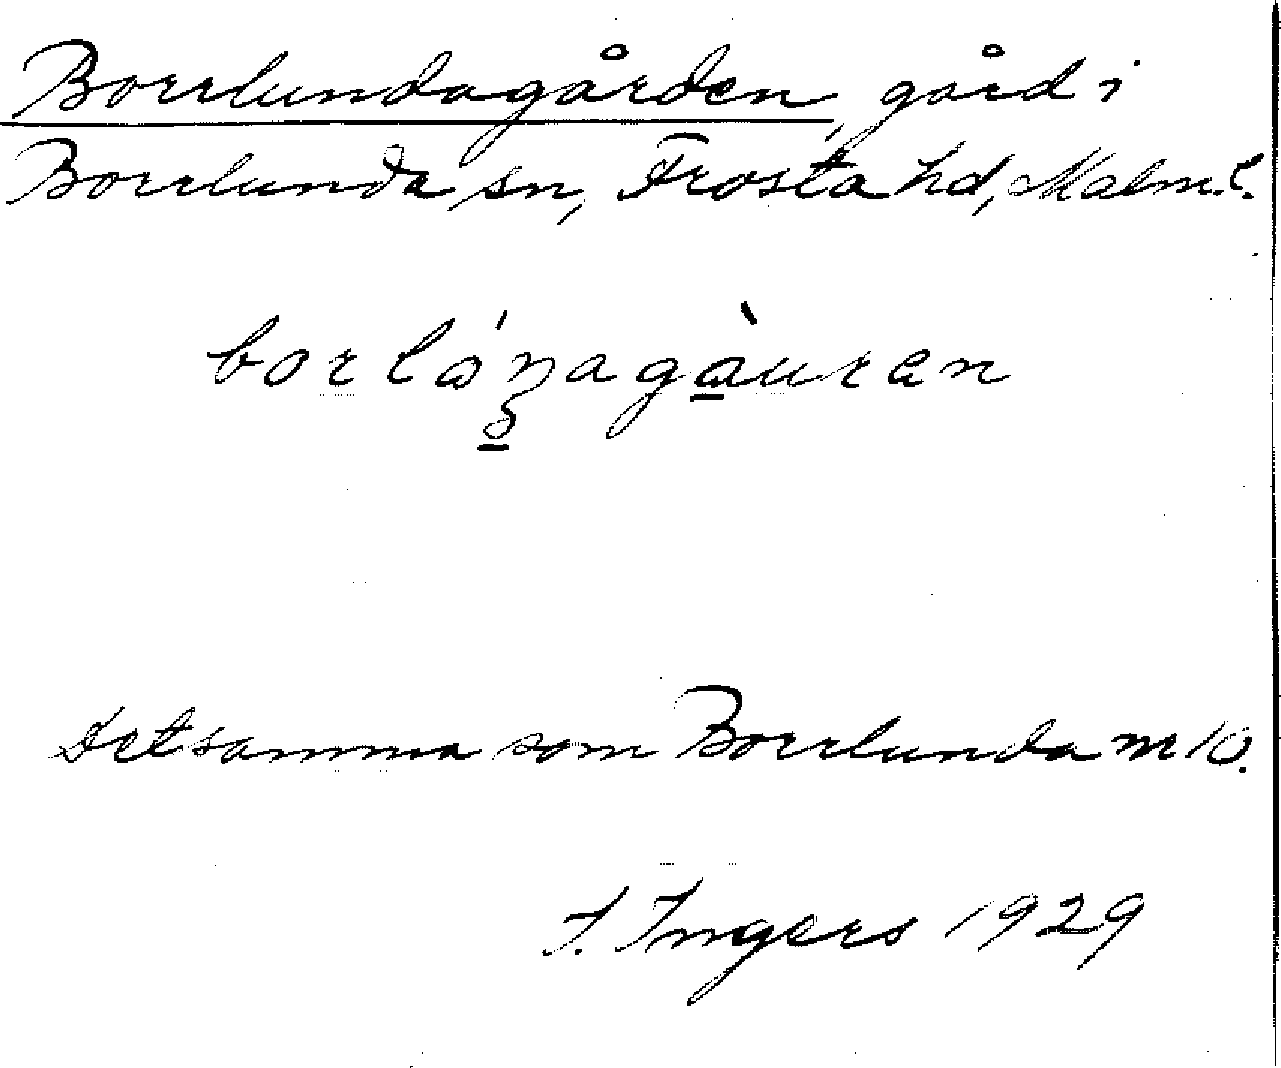 Borrlundagården, gård i
Borrlunda sn, Frosta hd, Malm. l.
Detsamma som Borrlunda nr 10.
I. Ingers 1929